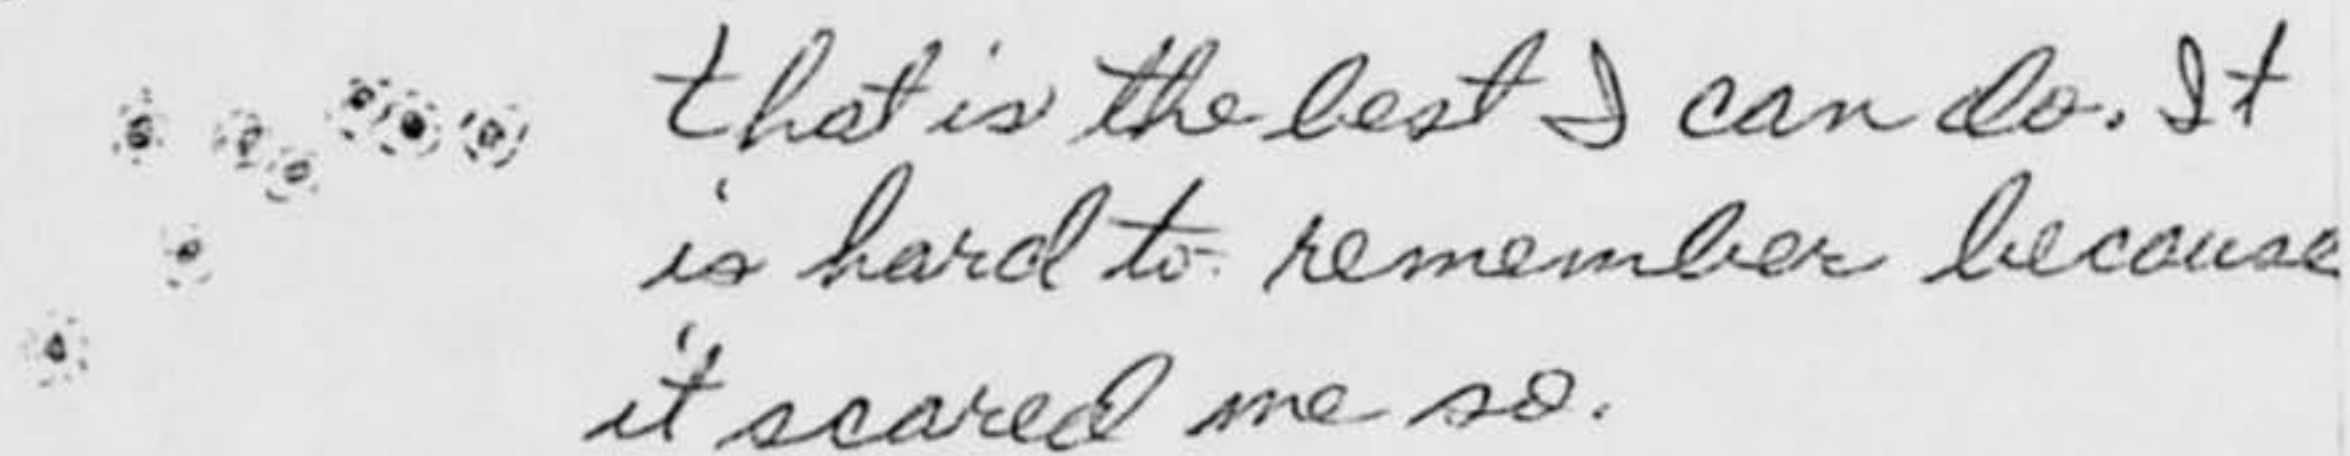 that is the best I can do. It
is hard to remember because
it scared me so.